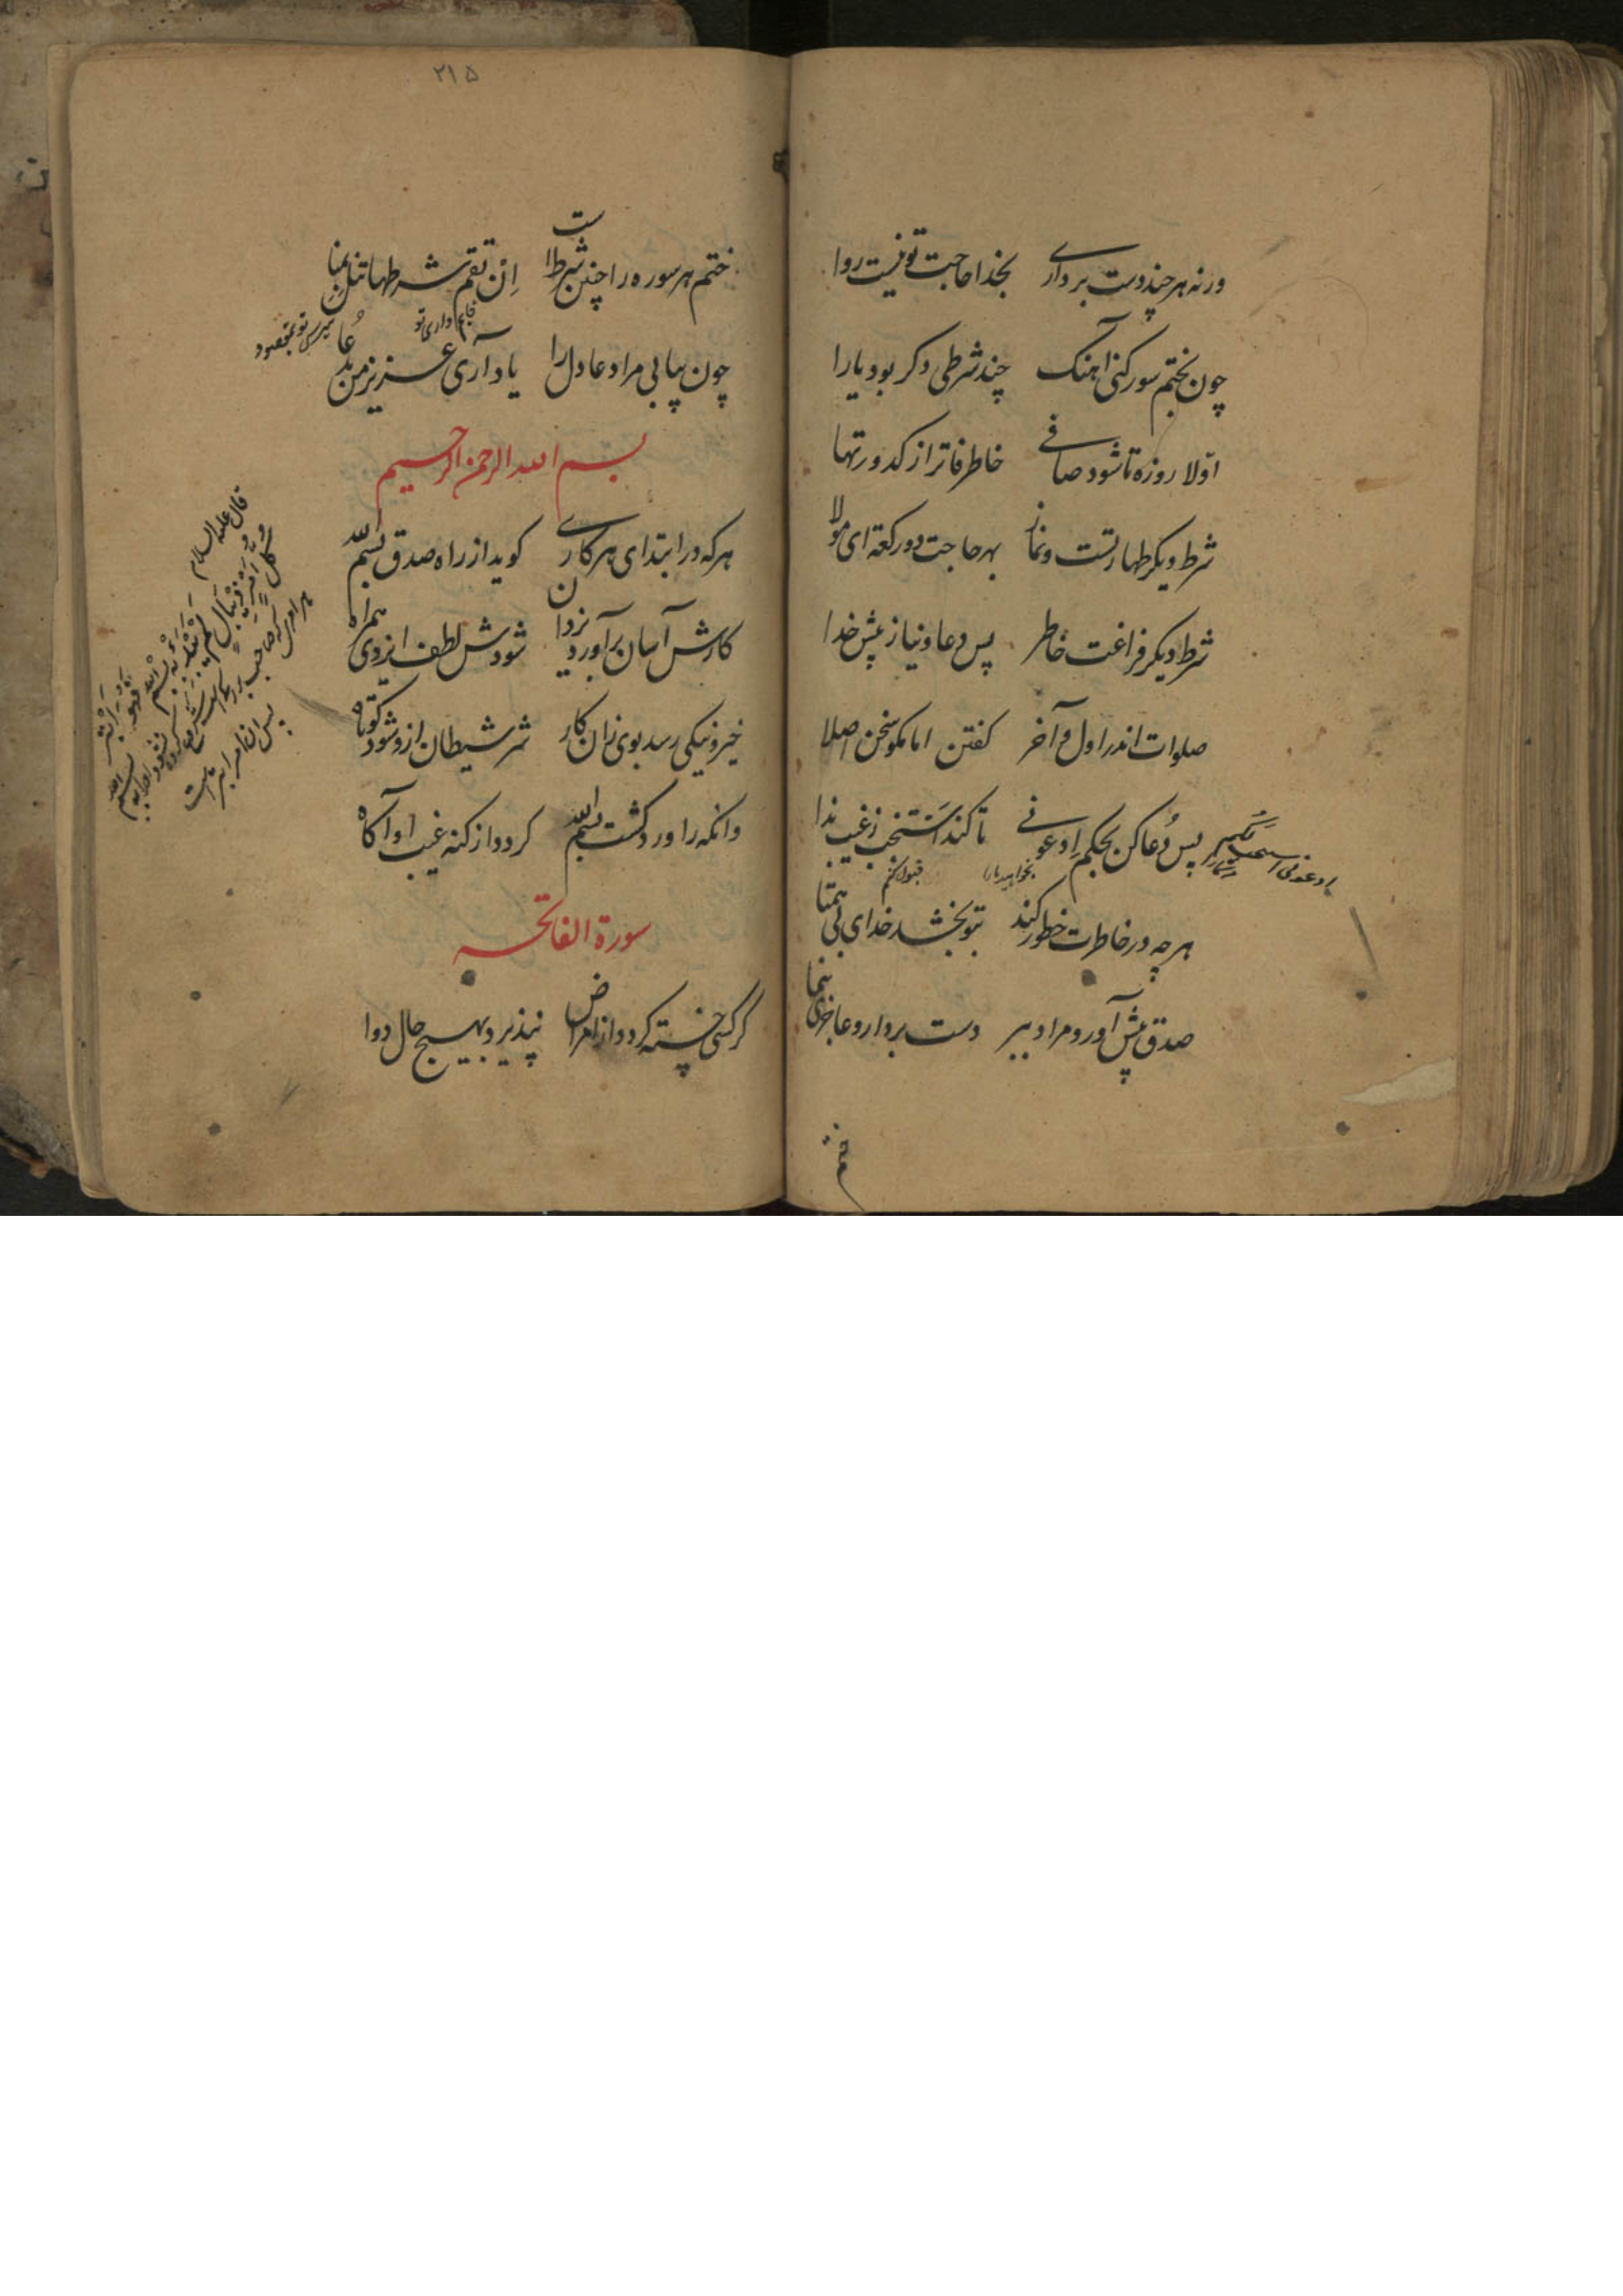 ورنه هر چند دست برداری بخدا حاجت تو نیست روا
چون بختم سور کنی آهنک چند شرطی دکر بود یارا
اولا روزه تا شود صافی خاطر فاتر از کدورتها
شرط دیکر طهارتست و نماز بهر حاجت دو رکعة ای مولا
شرط دیکر فراغت خاطر پس دعا و نیاز پیش خدا
صلوات اندر اول و آخر کفتن اما مکو سخن اصلا
پس دُعا کن بحکم اِدعونی تا کند اَستَجِب ز غیب ندا
قبول کنم
هر چه در خاطرت خطور کند بتو بخشد خدای بی همتا
صدق پیش آور و مراد ببر دست بردار و عاجزی بنما
ختم
۲۱۵
ختم هر سوره را چنین شرط است اِن تقم شرطها تنل بمنا
قایم داری تو
میرسی تو بمقصود
چون بیابی مراد عادل را یاد آری عزیز من بدُعا
بسم الله الرحمن الرحیم
هر که در ابتدای هر کاری کوید از راه صدق بسم الله
کارش آسان برآورد یزدان شودش لطف ایزدی همراه
خیر و نیکی رسد بوی زان کار شر شیطان ازو شود کوتاه
وانکه را ورد کشت بسم الله کردد از کنه غیب او آکاه
قال علیه السلام
کُلُّ اَمْرٍ ذِیْ بَالٍ لَمْ
بسم الله فهو
سورة الفاتحه
کر کسی خسته کردد از امراض نپذیرد بهیچ حال دوا